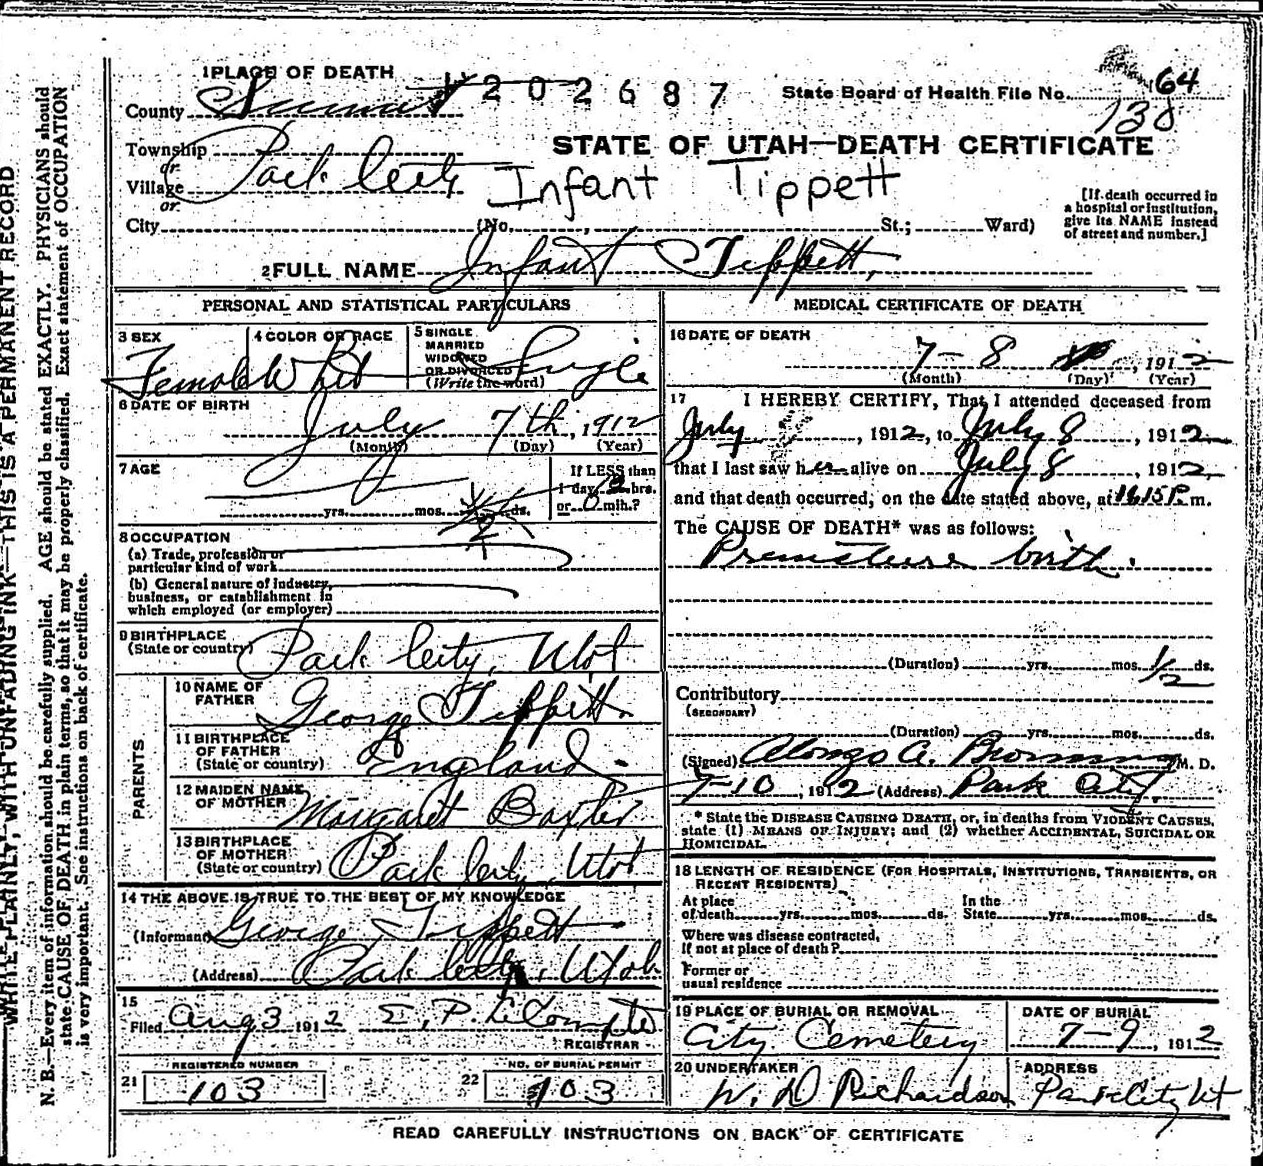 1 PLACE OF DEATH
County Summit
202687
State Board of Health File No. 64
130
Township
or
Village Park City
or
City (No. , St.; Ward)
STATE OF UTAH—DEATH CERTIFICATE
Infant Tippett
[If death occurred in
a hospital or institution,
give its NAME instead
of street and number.]
2 FULL NAME Infant Tippett,
PERSONAL AND STATISTICAL PARTICULARS
3 SEX
Female
4 COLOR OR RACE
Whit
5 SINGLE
MARRIED
WIDOWED
OR DIVORCED
(Write the word)
Single
6 DATE OF BIRTH
July 7th, 1912
(Month) (Day) (Year)
7 AGE
yrs. mos. 1/2 ds.
If LESS than
1 day, hrs.
or 0 min.?
8 OCCUPATION
(a) Trade, profession or
particular kind of work
(b) General nature of Industry,
business, or establishment in
which employed (or employer)
9 BIRTHPLACE
(State or country)
Park City, Utah
PARENTS
10 NAME OF
FATHER
George Tippett
11 BIRTHPLACE
OF FATHER
(State or country)
England
12 MAIDEN NAME
OF MOTHER
Margaret Baxter
13 BIRTHPLACE
OF MOTHER
(State or country)
Park City, Utah
14 THE ABOVE IS TRUE TO THE BEST OF MY KNOWLEDGE
(Informant) George Tippett
(Address) Park City, Utah
15
Filed Aug 3 1912 E. P. LeCompte
REGISTRAR
REGISTERED NUMBER
21 103
NO. OF BURIAL PERMIT
22 103
MEDICAL CERTIFICATE OF DEATH
16 DATE OF DEATH
7-8 , 1912
(Month) (Day) (Year)
17 I HEREBY CERTIFY, That I attended deceased from
July , 1912, to July 8 , 1912
that I last saw her alive on July 8 , 1912,
and that death occurred, on the date stated above, at P. m.
The CAUSE OF DEATH* was as follows:
Premature birth.
(Duration) yrs. mos. 1/2 ds.
Contributory
(SECONDARY)
(Duration) yrs. mos. ds.
(Signed) Alonzo A. M. D.
7-10, 1912 (Address) Park City.
* State the DISEASE CAUSING DEATH, or, in deaths from VIOLENT CAUSES,
state (1) MEANS OF INJURY; and (2) whether ACCIDENTAL, SUICIDAL OR
HOMICIDAL.
18 LENGTH OF RESIDENCE (FOR HOSPITALS, INSTITUTIONS, TRANSIENTS, OR
RECENT RESIDENTS)
At place
of death yrs. mos. ds.
In the
State yrs. mos. ds.
Where was disease contracted,
If not at place of death?
Former or
usual residence
19 PLACE OF BURIAL OR REMOVAL
City Cemetery
DATE OF BURIAL
7-9, 1912
20 UNDERTAKER
W. D Richardson
ADDRESS
Park City Ut
READ CAREFULLY INSTRUCTIONS ON BACK OF CERTIFICATE
WRITE PLAINLY, WITH UNFADING INK—THIS IS A PERMANENT RECORD
N. B.—Every item of information should be carefully supplied. AGE should be stated EXACTLY. PHYSICIANS should
state CAUSE OF DEATH in plain terms, so that it may be properly classified. Exact statement of OCCUPATION
is very important. See instructions on back of certificate.